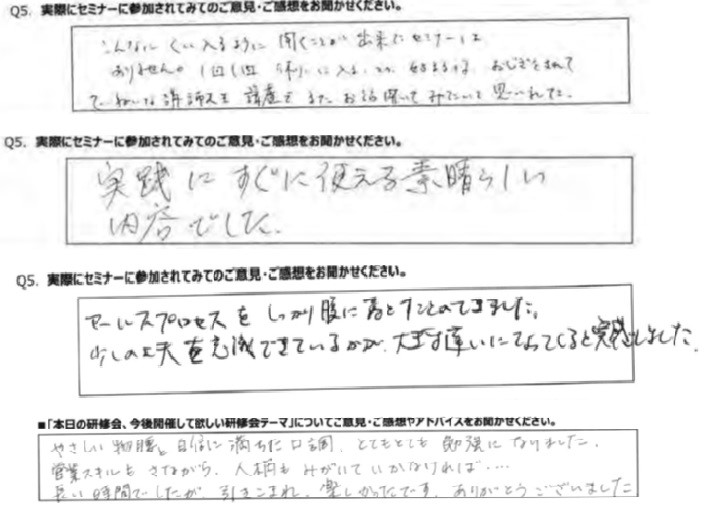 Q5. 実際にセミナーに参加されてみてのご意見・ご感想をお聞かせください。
こんなに くい入るように 聞くことが 出来たセミナーは
ありません。1回1回 休けいに入る、 始まる おじぎをされて
ていねいな講師 講座 また お話 聞いて みたいと思いました。
Q5. 実際にセミナーに参加されてみてのご意見・ご感想をお聞かせください。
実践に すぐに使える素晴らしい
内容でした。
Q5. 実際にセミナーに参加されてみてのご意見・ご感想をお聞かせください。
セールスプロセスを しっかり腹に落とすことができました。
少しの工夫を意識できているかが、大きな違いになってくると実感しました。
■「本日の研修会、今後開催して欲しい研修会テーマ」についてご意見・ご感想やアドバイスをお聞かせください。
やさしい物腰、自信に満ちた口調、とてもとても 勉強に なりました。
営業スキルも さながら、人柄も みがいて いかなければ・・・・
長い時間でしたが、引きこまれ、楽しかったです。ありがとうございました